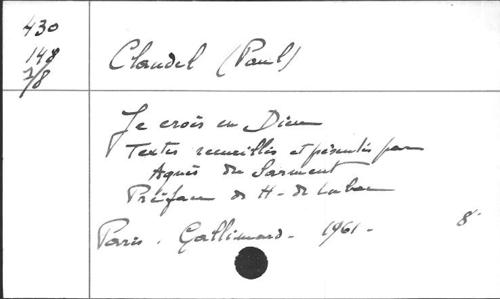 430
148
7/8
Claudel (Paul)
Je crois en Dieu
Textes recueillis et présentés par
Agnès du Sarment
Préface de H. de Lubac
Paris. Gallimard - 1961 - 8°